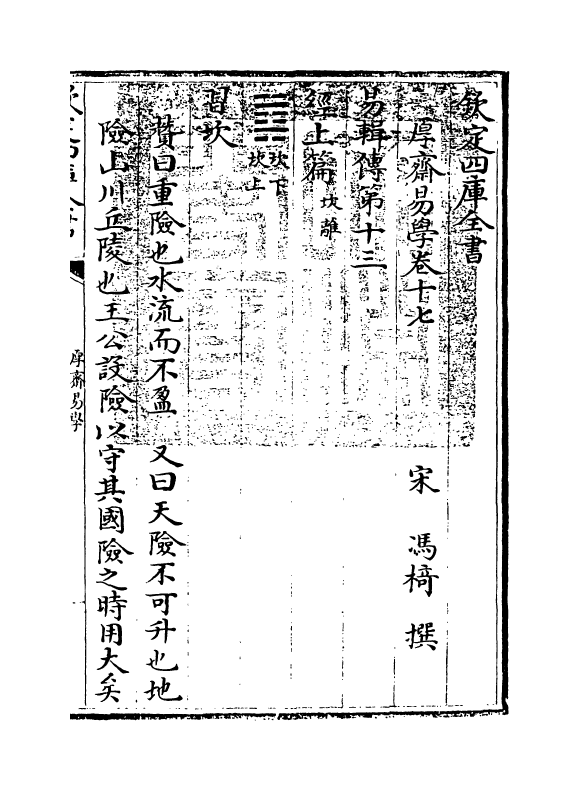 欽定四庫全書
厚齋易學卷十七　宋　馮椅　撰
易輯傳第十三
經上篇 坎離
䷜ 坎下
坎上
習坎
贊曰重險也水流而不盈　又曰天險不可升也地
險山川丘陵也王公設險以守其國險之時用大矣
厚齋易學